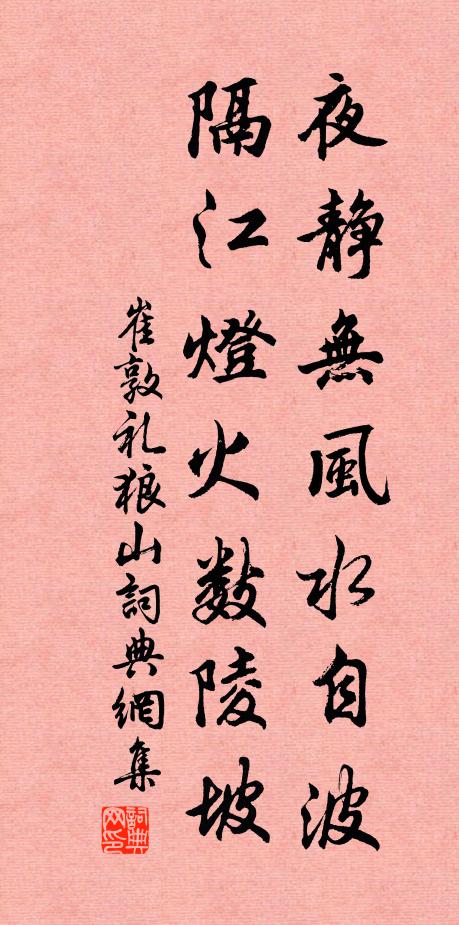 夜静無風水自波
隔江燈火数陵坡
崔敦礼狼山詞典網集
詞典网印